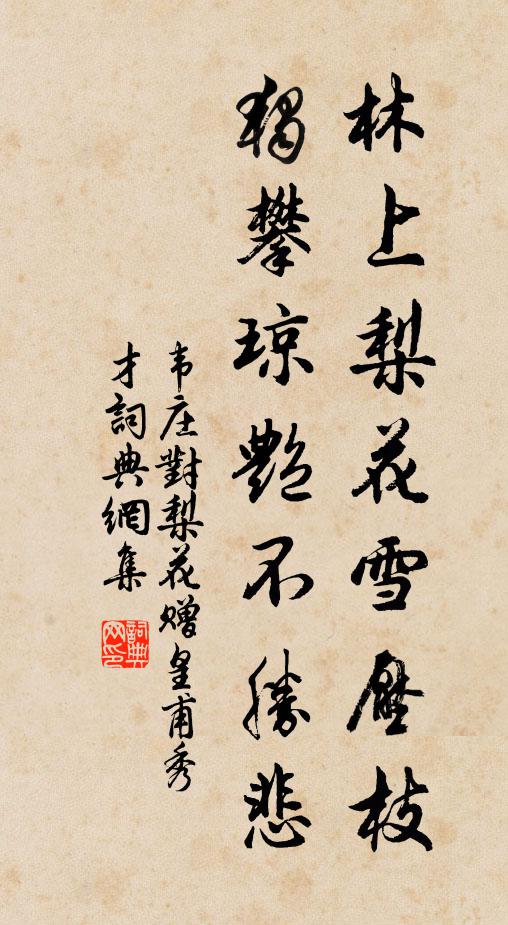 林上梨花雪壓枝
獨攀瓊艷不勝悲
韦庄對梨花赠皇甫秀
才詞典網集
詞典網印